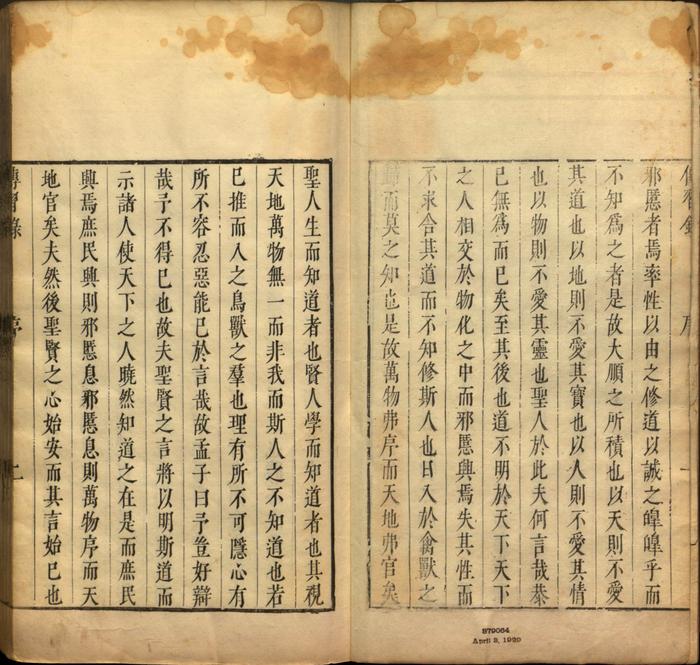 傳習錄 序
邪慝者焉率性以由之修道以誠之皥皥乎而
不知爲之者是故大順之所積也以天則不愛
其道也以地則不愛其寶也以人則不愛其情
也以物則不愛其靈也聖人於此夫何言哉恭
己無爲而已矣至其後也道不明於天下天下
之人相交於物化之中而邪慝興焉失其性而
不求舍其道而不知修斯人也日入於禽獸之
歸而莫之知也是故萬物弗序而天地弗官矣
聖人生而知道者也賢人學而知道者也其視
天地萬物無一而非我而斯人之不知道也若
已推而入之鳥獸之羣也理有所不可隱心有
所不容忍惡能已於言哉故孟子曰予豈好辯
哉予不得已也故夫聖賢之言將以明斯道而
示諸人使天下之人曉然知道之在是而庶民
興焉庶民興則邪慝息邪慝息則萬物序而天
地官矣夫然後聖賢之心始安而其言始已也
傳習錄 序 二
879064
April 3, 1929